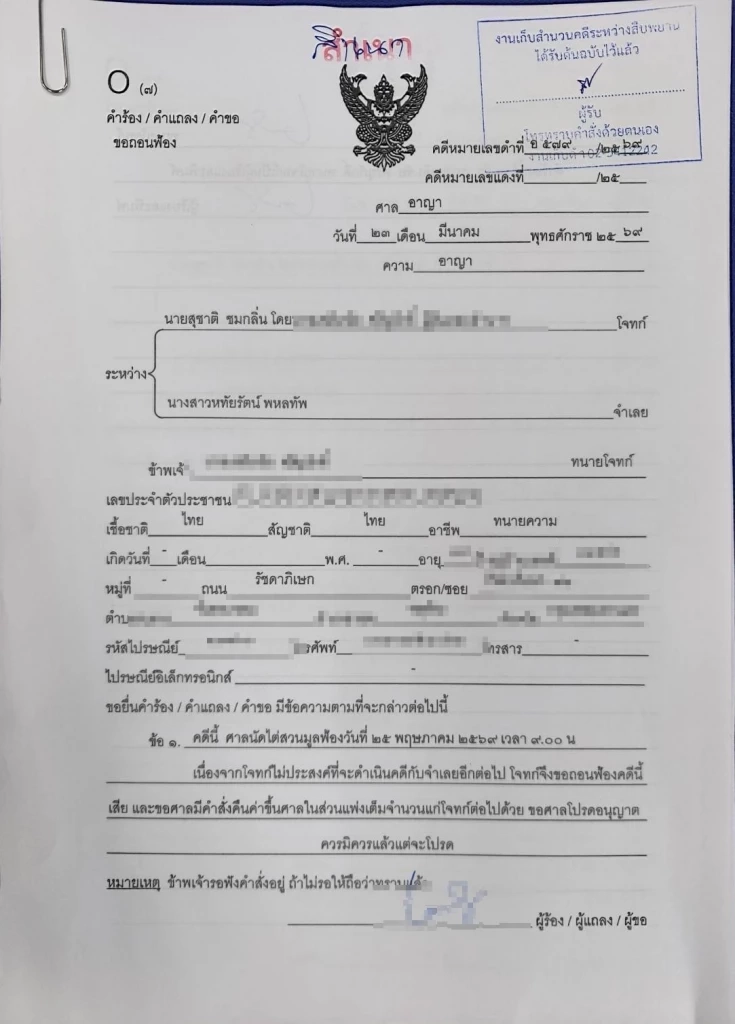 สำเนา
สำเนา
งานเก็บสำนวนคดีระหว่างสืบพยาน
ได้รับต้นฉบับไว้แล้ว
ผู้รับ
โทรทราบคำสั่งด้วยตนเอง
(๗)
คำร้อง / คำแถลง / คำขอ
ขอถอนฟ้อง
คดีหมายเลขดำที่ อ ๕๗๙ /๒๕ ๖๙
คดีหมายเลขแดงที่ /๒๕
ศาล อาญา
วันที่ ๒๓ เดือน มีนาคม พุทธศักราช ๒๕ ๖๙
ความ อาญา
นายสุชาติ ชมกลิ่น โดย โจทก์
ระหว่าง
นางสาวหทัยรัตน์ พหลทัพ
จำเลย
ข้าพเจ้า ทนายโจทก์
เลขประจำตัวประชาชน
เชื้อชาติ ไทย สัญชาติ ไทย อาชีพ ทนายความ
เกิดวันที่ - เดือน พ.ศ. - อายุ
หมู่ที่ - ถนน รัชดาภิเษก ตรอก/ซอย
รหัสไปรษณีย์ โทรสาร -
ไปรษณีย์อิเล็กทรอนิกส์ -
ขอยื่นคำร้อง / คำแถลง / คำขอ มีข้อความตามที่จะกล่าวต่อไปนี้
ข้อ ๑. คดีนี้ ศาลนัดไต่สวนมูลฟ้องวันที่ ๒๕ พฤษภาคม ๒๕๖๙ เวลา ๙.๐๐ น
เนื่องจากโจทก์ไม่ประสงค์ที่จะดำเนินคดีกับจำเลยอีกต่อไป โจทก์จึงขอถอนฟ้องคดีนี้
เสีย และขอศาลมีคำสั่งคืนค่าขึ้นศาลในส่วนแพ่งเต็มจำนวนแก่โจทก์ต่อไปด้วย ขอศาลโปรดอนุญาต
ควรมิควรแล้วแต่จะโปรด
หมายเหตุ ข้าพเจ้ารอฟังคำสั่งอยู่ ถ้าไม่รอให้ถือว่าทราบแล้ว
ผู้ร้อง / ผู้แถลง / ผู้ขอ